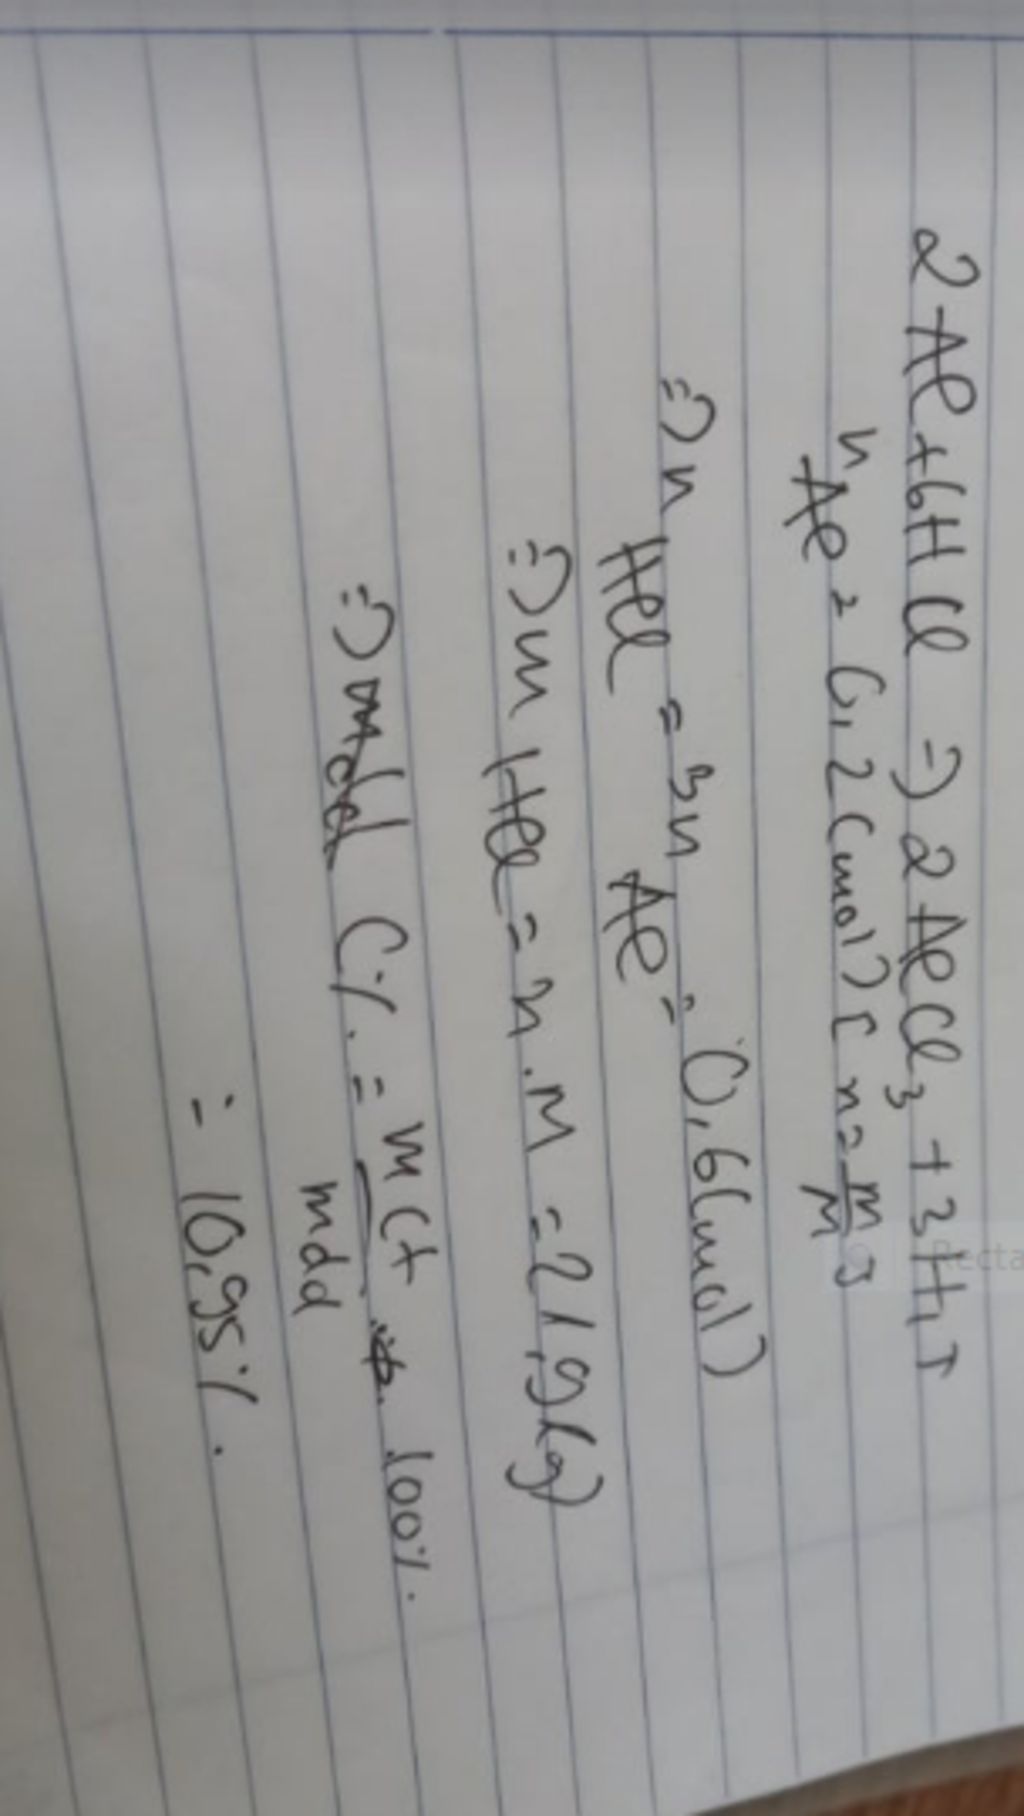 2Al + 6HCl => 2AlCl3 + 3H2↑
nAl = 0,2 (mol) [n = m/M]
=> nHCl = 3nAl = 0,6 (mol)
=> mHCl = n.M = 21,9 (g)
=> C% = mct/mdd . 100%.
= 10,95%.